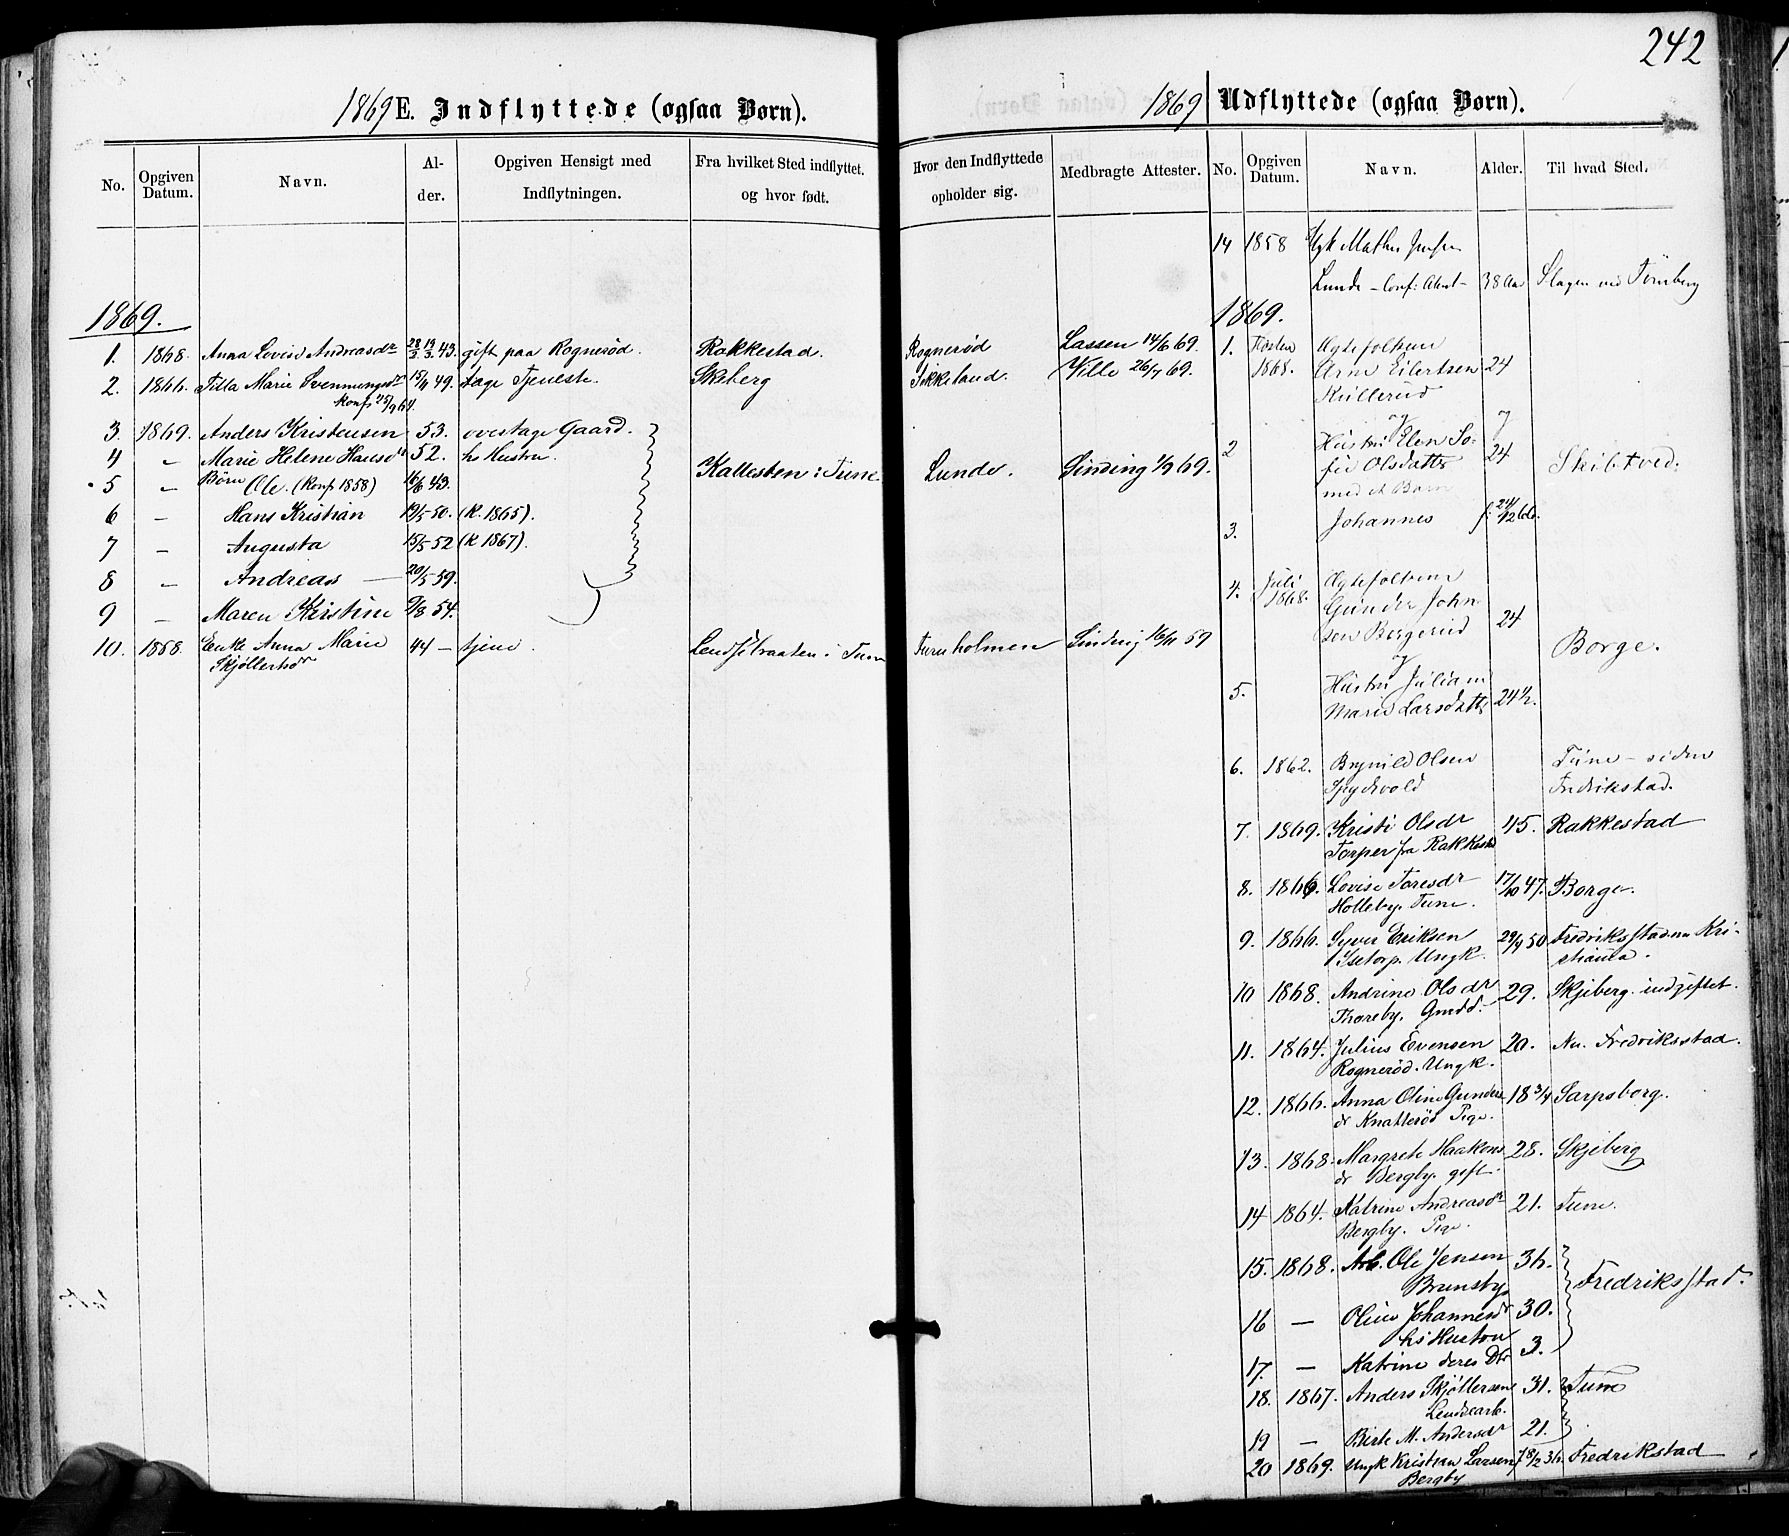 242
1869 E. Indflyttede (ogsaa Børn).
No. Opgiven Datum. Navn. Alder. Opgiven Hensigt med Indflytningen. Fra hvilket Sted indflyttet. og hvor født.
Hvor den Indflyttede opholder sig. Medbragte Attester.
1869.
1. 1868. Anna Lovise Andreasdr 43. gift paa Rognerød. Rakkestad. Rognerød Lassen 14/6 69.
2. 1866. Marie Svenmungsdr 15/11 49. tage Tjeneste. Skeberg Wille 26/7 69.
Konf 25/9 64.
3. 1869. Anders Kristensen 53. overtage Gaard.
4 – Marie Helene Hansdr 52. hs Hustru. Kallesten i Tune. Lunde. Sinding 1/9 69.
5 – Børn Ole (Konf 1858) 16/6 43.
6 – Hans Kristian 19/5 50. (K. 1865).
7 – Augusta 15/5 52 (K 1867).
8 – Andreas — 20/5 59.
9 – Maren Kristine 9/8 54.
10. 1858. Enke Anna Marie 44 – tjene. i Tune Sinding 16/11 59
1869 Udflyttede (ogsaa Børn).
No. Opgiven Datum. Navn. Alder. Til hvad Sted.
14 1858 Ugk
Lunde – Conf: Attest – 38 Aar Slagen ved Tönsberg
1869.
1. Høsten 1868. Ægtefolkene
Arne Eilertsen 24
Küllerud
og
2 Hustru Elen So-
fie Olsdatter 24 Skibtved.
med et Barn
3. Johannes f: 24/12 66.
4. Juli 1868. Ægtefolkene
Gunder John-
sen Bergerud 24
og Borge.
5. Hustru Julia m
Marie Larsdattr 24½.
6. 1862. Brynild Olsen Tune – siden
Spydevold Fredrikstad.
7. 1869. Kristi Olsdr 45. Rakkestad
Torper fra Rakkestad
8. 1866. Lovise Toresdr 17/10 47. Borge.
Holleby. Tune.
9. 1866. Syver Eriksen 29/4 50 Fredriksstad nu Kri-
Isetorp. Ungk. stiania.
10 1868. Andrine Olsdr 29. Skjeberg. indgiftet.
Thoreby. Gmdd.
11. 1864. Julius Evensen 20. Nu Fredriksstad.
Rognerød. Ungk.
12. 1866. Anna Oline Gunders 18 3/4 Sarpsborg.
dr Knatterød Pige.
13. 1868. Margrete Haakons 28. Skjeberg
dr Bergby. gift.
14 1864. Katrine Andreasdr 21. Tune.
Bergby. Pige.
15. 1868. Arb. Ole Jensen 36. Fredriksstad.
Brunsby
16 — Oline Johannesdr 30.
hs Hustru
17. — Katrine deres Dtr 3.
18. 1867. Anders Skjöllersen 31. Tune
19 — Birte M. Andersdr 21.
20 1869. Ungk Kristian Larsen 36. Fredrikstad
Bergby